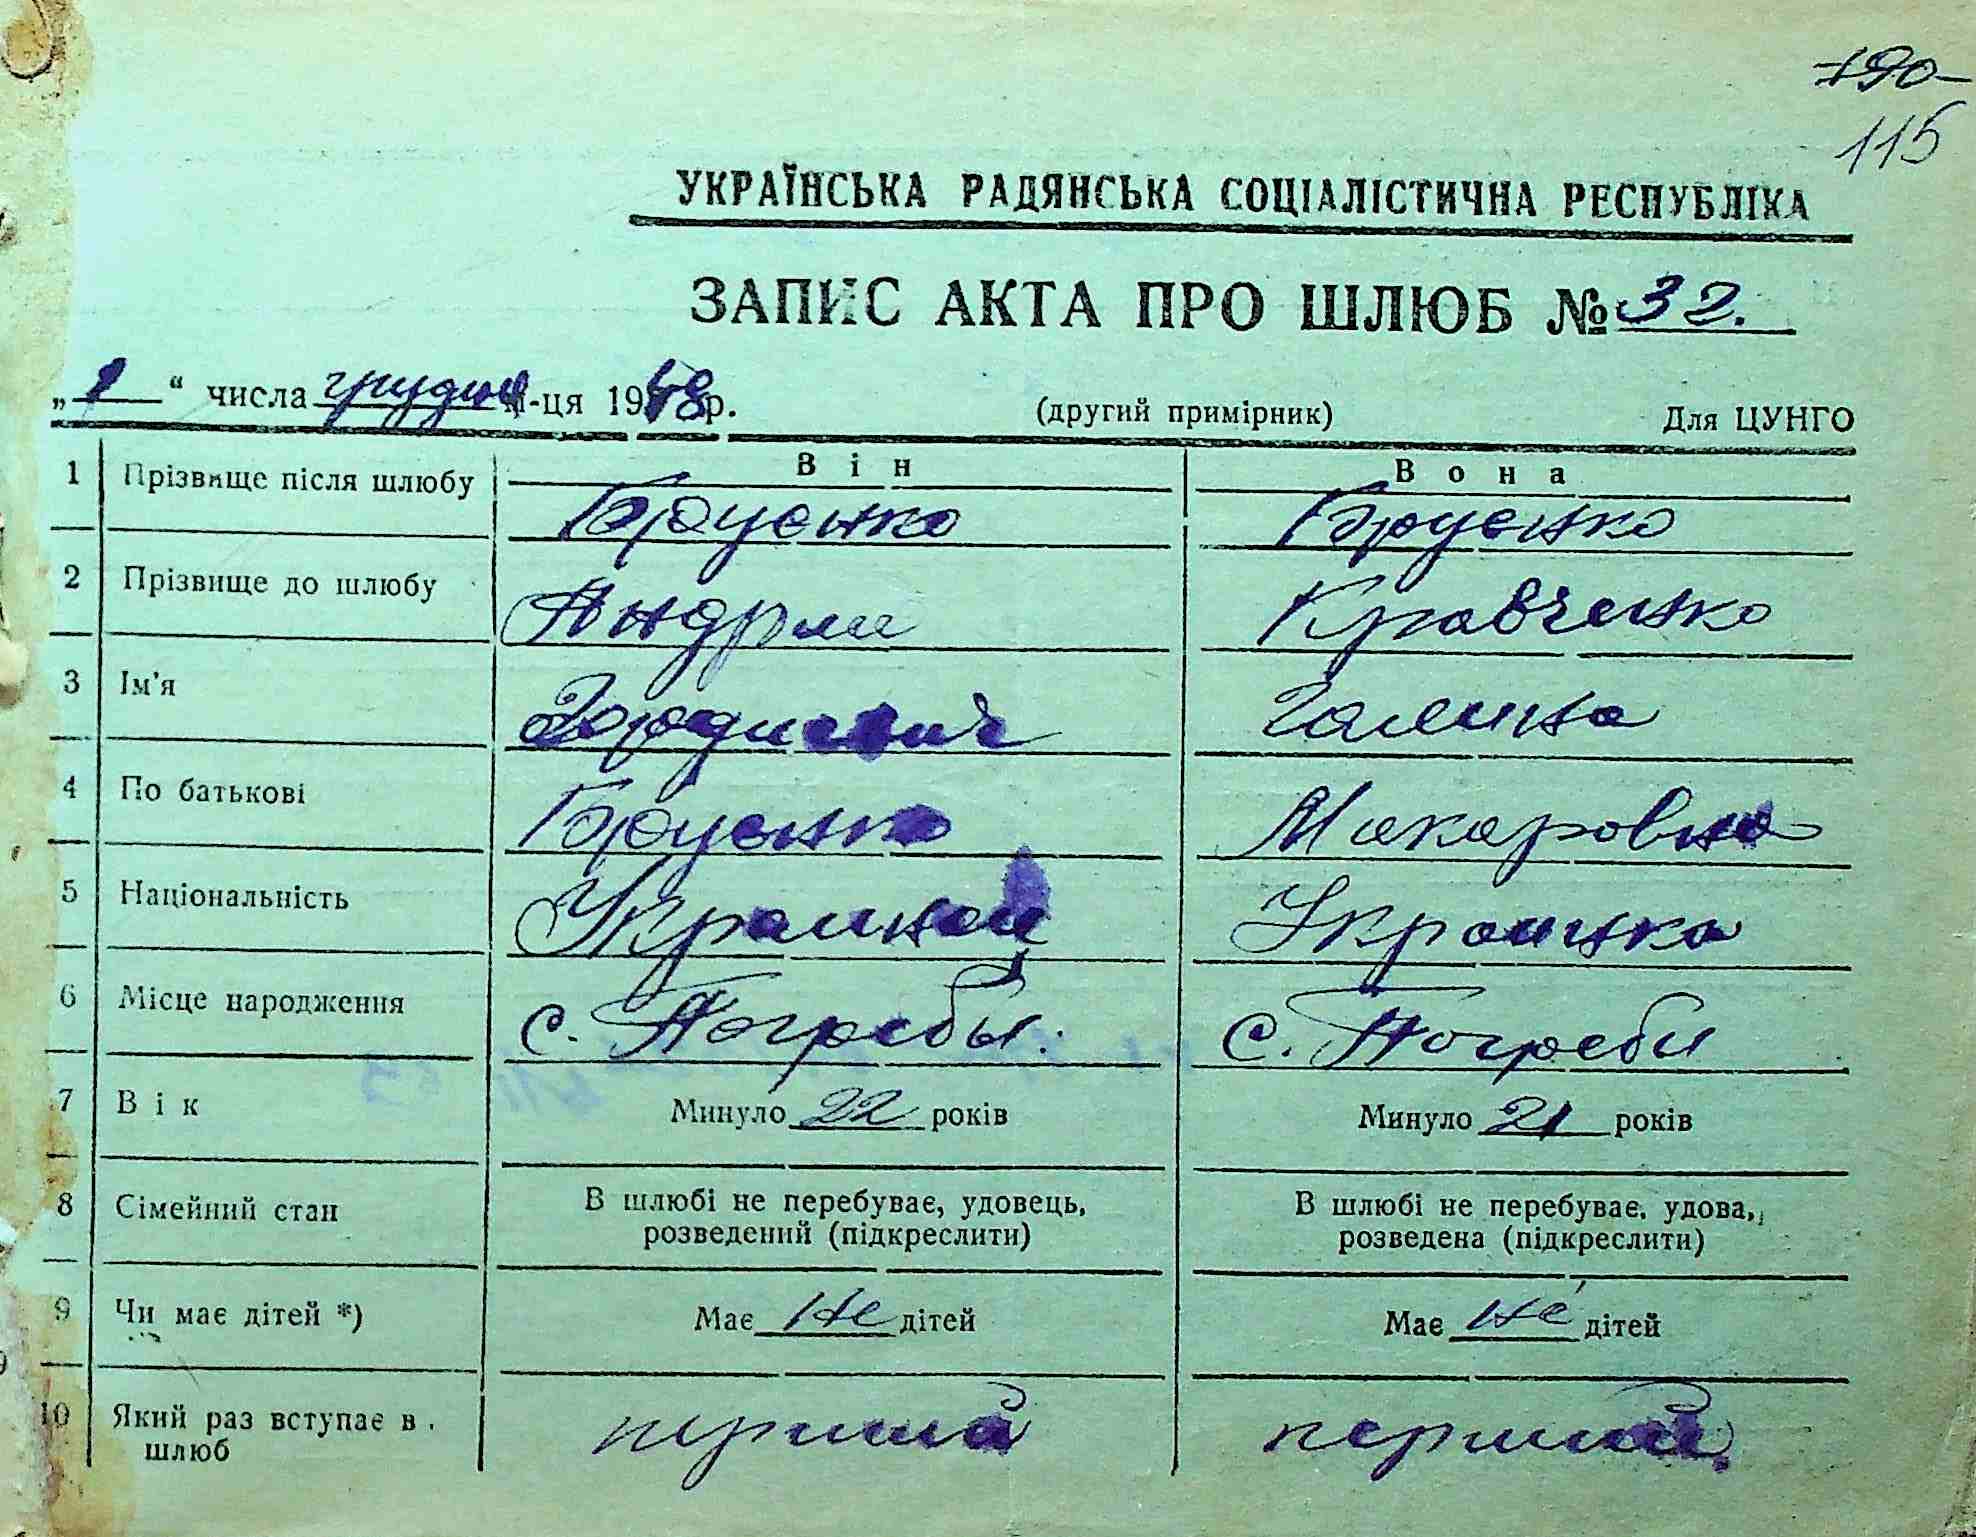 190
115
УКРАЇНСЬКА РАДЯНСЬКА СОЦІАЛІСТИЧНА РЕСПУБЛІКА
ЗАПИС АКТА ПРО ШЛЮБ № 32.
„ “ числа грудня м-ця 1948 р. (другий примірник) Для ЦУНГО
Він Вона
1 Прізвище після шлюбу Бруенко Бруенко
2 Прізвище до шлюбу Андрии Кравченко
3 Ім'я Галина
4 По батькові Бруенко Макаровна
5 Національність Украинец Украинка
6 Місце народження с. Погребы. с. Погреби
7 Вік Минуло 22 років Минуло 21 років
8 Сімейний стан В шлюбі не перебуває, удовець, В шлюбі не перебуває, удова,
розведений (підкреслити) розведена (підкреслити)
9 Чи має дітей *) Має Не дітей Має Не дітей
10 Який раз вступає в перший перший
шлюб